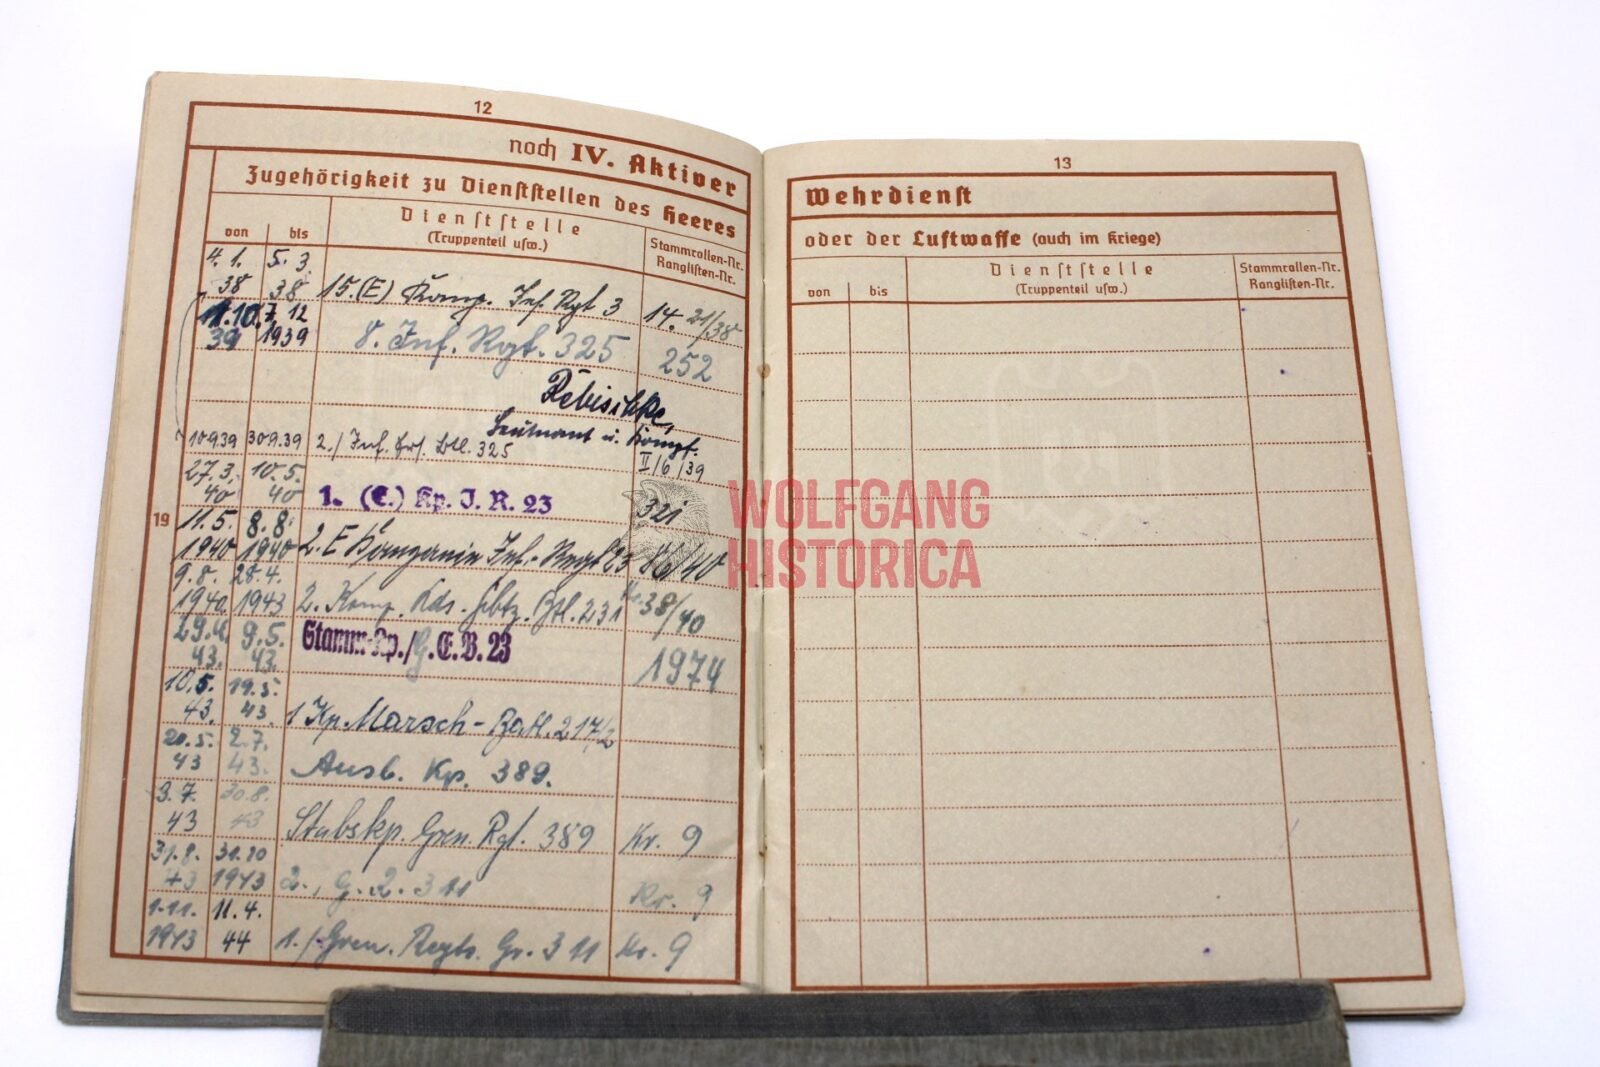 12
noch IV. Aktiver
Zugehörigkeit zu Dienststellen des Heeres
von bis Dienststelle (Truppenteil usw.) Stammrollen-Nr. Ranglisten-Nr.
4. 1. 38 5. 3. 38 15.(E) Komp. Inf. Rgt 3 14. 21/38
1.10. 39 7. 12 1939 8. Inf. Rgt. 325 252
Leutnant u. Kompf.
10939 309.39 2./ Inf. Ers. Btl. 325 II/6/39
27.3. 40 10.5. 40 1. (E.) Kp. I. R. 23 321
19 11.5. 1940 8.8. 1940 2. E Kompanie Inf.-Regt 23 86/40
9.8. 1940 28.4. 1943 2. Komp. Lds. Schtz. Btl. 231 38/40
29.4. 43. 9.5. 43. Stamm-Kp./G.E.B. 23 1974
10.5. 43. 19.5. 43. 1 Kp. Marsch-Batl. 217/2
20.5. 43 2.7. 43. Ausb. Kp. 389.
3.7. 43 30.8. 43 Stabskp. Gren. Rgt. 389 Kr. 9
31.8. 43 31.10 1943 2., G. R. 311 Kr. 9
1.11. 1943 11.4. 44 1./Gren. Regts. Gr. 311 Kr. 9
13
Wehrdienst
oder der Luftwaffe (auch im Kriege)
von bis Dienststelle (Truppenteil usw.) Stammrollen-Nr. Ranglisten-Nr.
WOLFGANG
HISTORICA